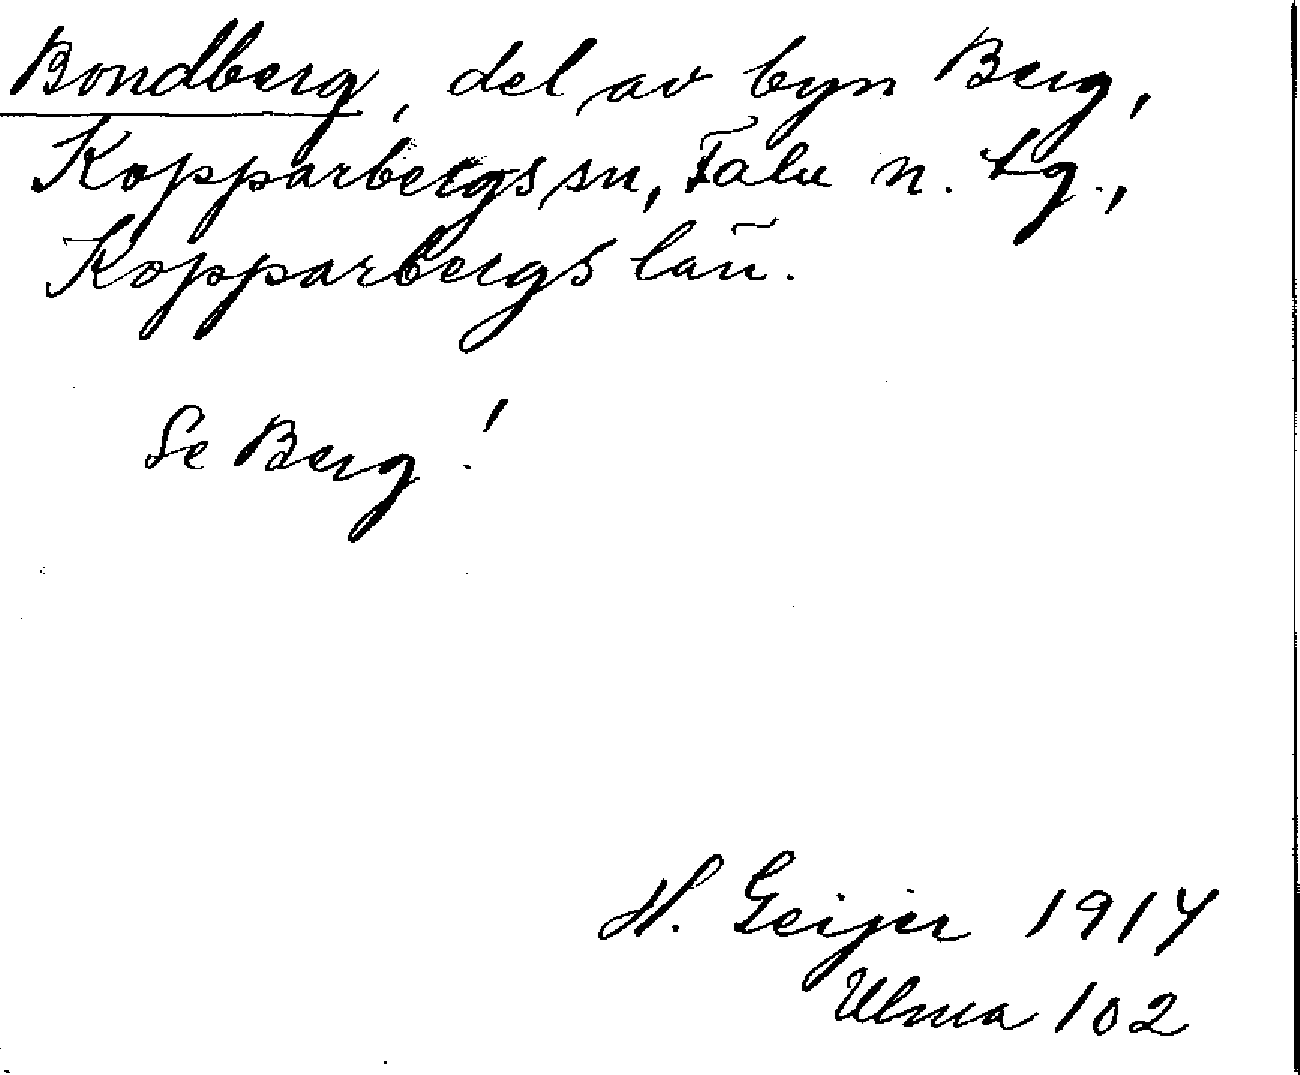 Bondberg, del av byn Berg,
Kopparbergs sn, Falu n. tg.,
Kopparbergs län.
Se Berg!
H. Geijer 1914
Ulma 102